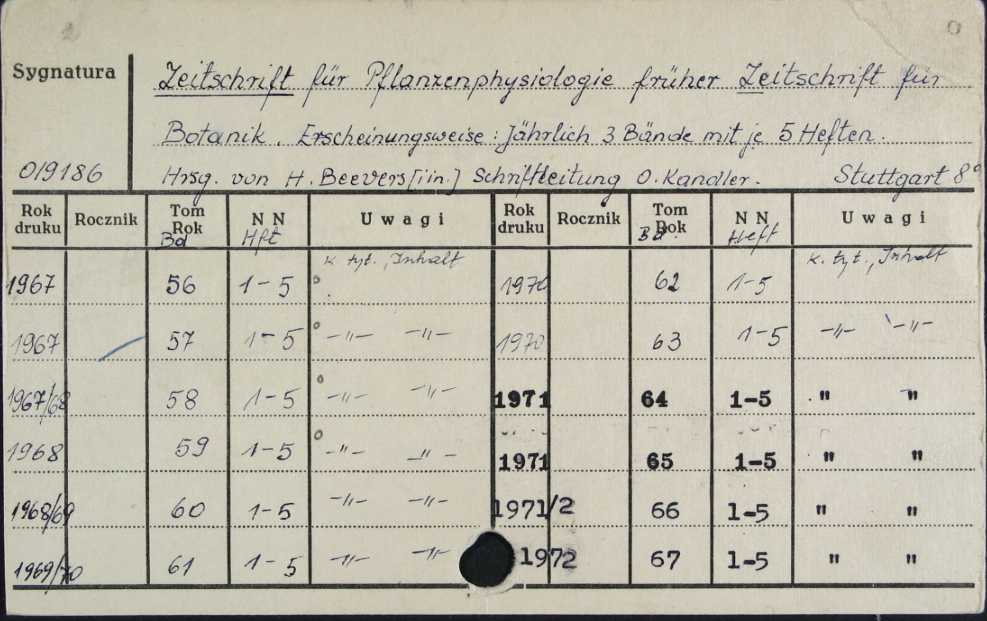 Sygnatura
Zeitschrift für Pflanzenphysiologie früher Zeitschrift für
Botanik. Erscheinungsweise: Jährlich 3 Bände mit je 5 Heften.
0/9186 Hrsg. von H. Beevers [i in.] Schriftleitung O. Kandler. Stuttgart 8°
Rok druku Rocznik Tom Rok Bd NN Hft Uwagi Rok druku Rocznik Tom Rok Bd. NN Heft Uwagi
k. tyt., Inhalt k. tyt., Inhalt
1967 56 1-5 1970 62 1-5
1967 57 1-5 -"- -"- 1970 63 1-5 -"- -"-
1967/68 58 1-5 -"- -"- 1971 64 1-5 " "
1968 59 1-5 -"- -"- 1971 65 1-5 " "
1968/69 60 1-5 -"- -"- 1971/2 66 1-5 " "
1969/70 61 1-5 -"- -"- 1972 67 1-5 " "